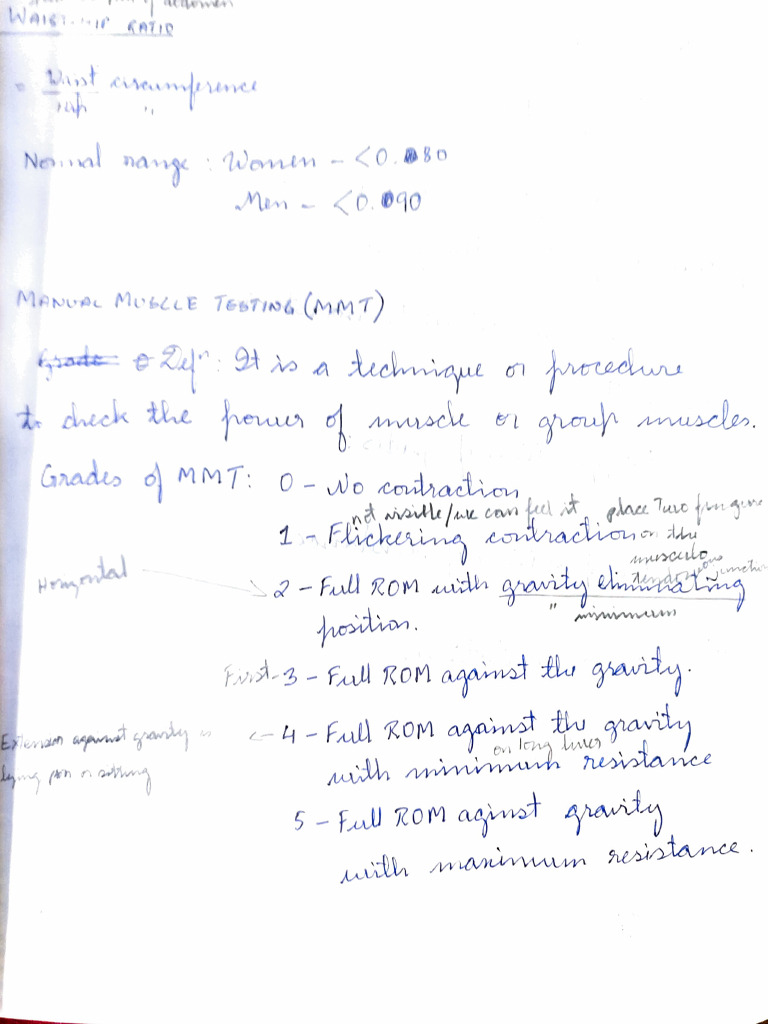 abdomen
WAIST-HIP RATIO
Waist circumference
Hip "
Normal range : Women - <0.080
Men - <0.090
MANUAL MUSCLE TESTING (MMT)
Grade Defn : It is a technique or procedure
to check the power of muscle or group muscles.
Grades of MMT: 0 - No contraction
not visible/we can feel it place Two fingers
1 - Flickering contraction on the
musculo
tendinous junction
Horizontal
2 - Full ROM with gravity eliminating
" minimum
position.
First - 3 - Full ROM against the gravity.
Extension against gravity is <- 4 - Full ROM against the gravity
on long lever
lying or sitting
with minimum resistance
5 - Full ROM aginst gravity
with maximum resistance.